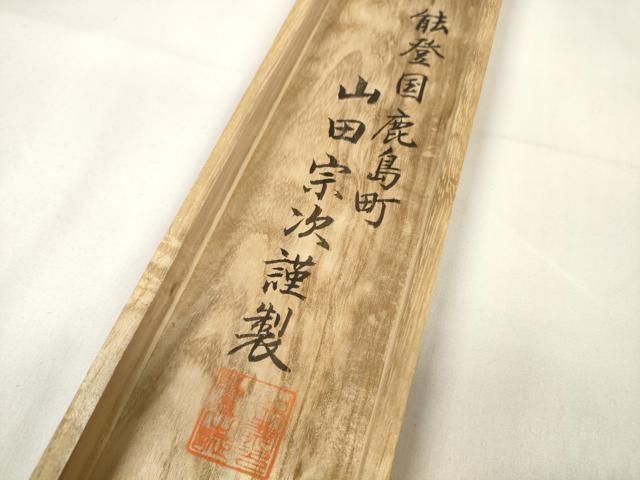 能登国鹿島町
山田宗次謹製